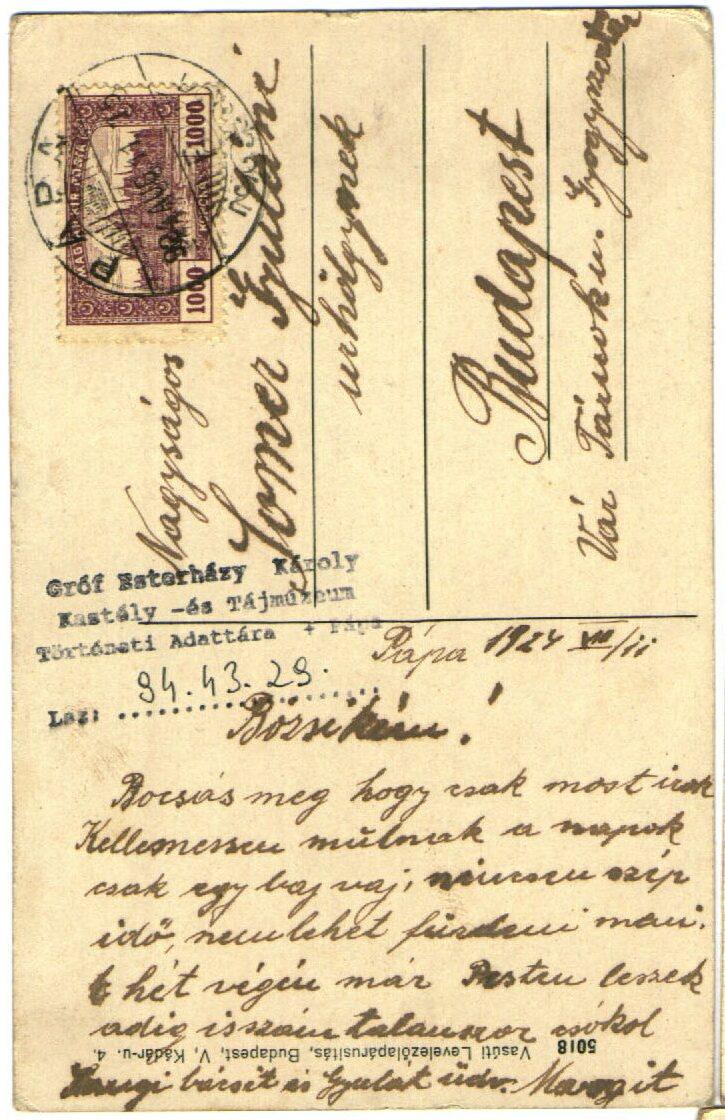 MAGYAR KIR. POSTA
1000
1000
PÁPA
Nagyságos
Somer Gyuláné
urhölgynek
Budapest
Vár Tárnok u.
Gróf Esterházy Károly
Kastély -és Tájmúzeum
Történeti Adattára + Pápa
94.43.29.
Lsz: ....................
Pápa 1924 VIII/11
Bözsikém!
Bocsás meg hogy csak most irok
Kellemessen múlnak a napok
csak egy baj vaj, nincsen szép
idő, nemlehet fürdeni meni.
A hét végén már Pesten leszek
adig isszám talanszor csókol
bácsit és Gyulát üdv. Margit
5018
Vasúti Levelezőlapárusítás, Budapest, V, Kádár-u. 4.